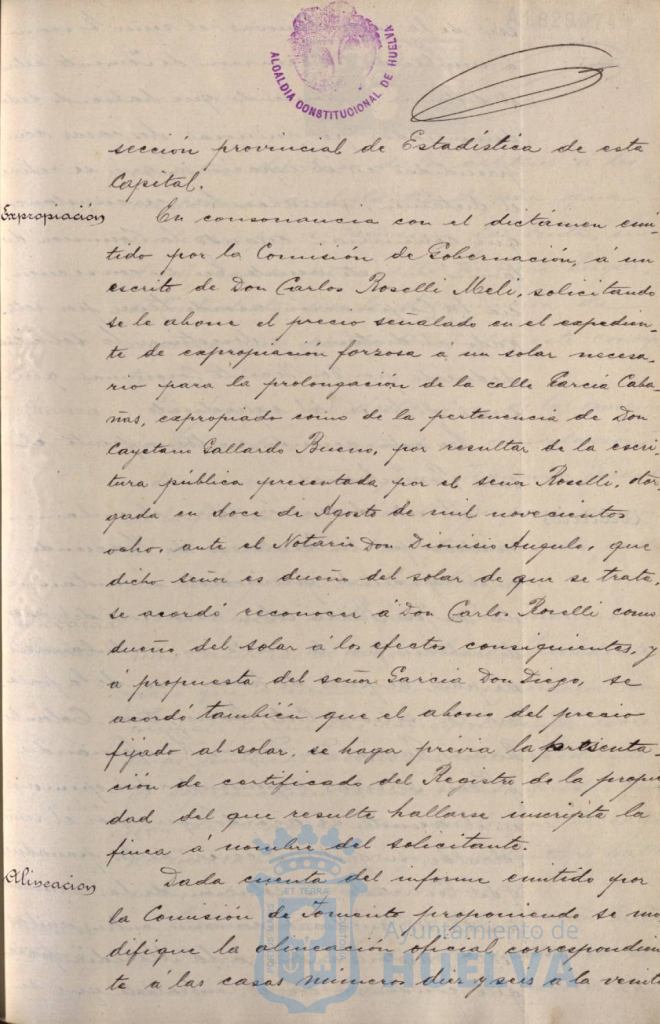 ALCALDIA CONSTITUCIONAL DE HUELVA
sección provincial de Estadística de esta
Capital.
Expropiación
En consonancia con el dictámen emi-
tido por la Comisión de Gobernación, á un
escrito de Don Carlos Roselli Meli, solicitando
se le abone el precio señalado en el expedien-
te de expropiación forzosa á un solar necesa-
rio para la prolongación de la calle García Caba-
ñas, expropiado como de la pertenencia de Don
Cayetano Gallardo Bueno, por resultar de la escri-
tura pública presentada por el señor Roselli, otor-
gada en doce de Agosto de mil novecientos
ocho, ante el Notario Don Dionisio Angulo, que
dicho señor es dueño del solar de que se trata,
se acordó reconocer á Don Carlos Roselli como
dueño del solar á los efectos consiguientes, y
á propuesta del señor García Don Diego, se
acordó también que el abono del precio
fijado al solar, se haga previa la presenta-
ción de certificado del Registro de la propie
dad del que resulte hallarse inscripta la
finca á nombre del solicitante.
Alineacion
Dada cuenta del informe emitido por
la Comisión de Fomento proponiendo se mo
difique la alineación oficial correspondien
te á las casas números diez y seis á la veinti
ET TERRA
Ayuntamiento de
HUELVA